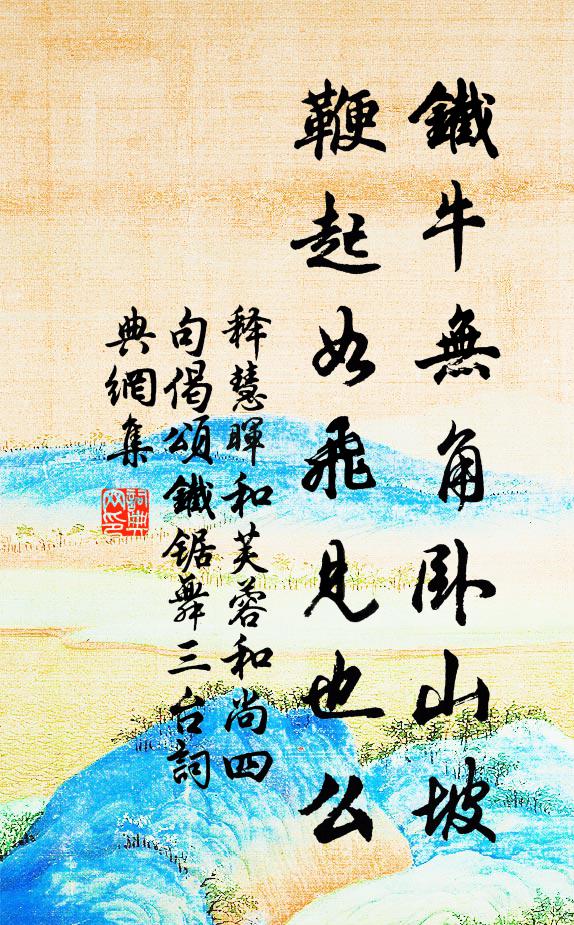 鐵牛無角卧山坡
鞭起如飛見也么
释慧暉和芙蓉和尚四
句偈頌鐵锯舞三台詞
典網集
詞典